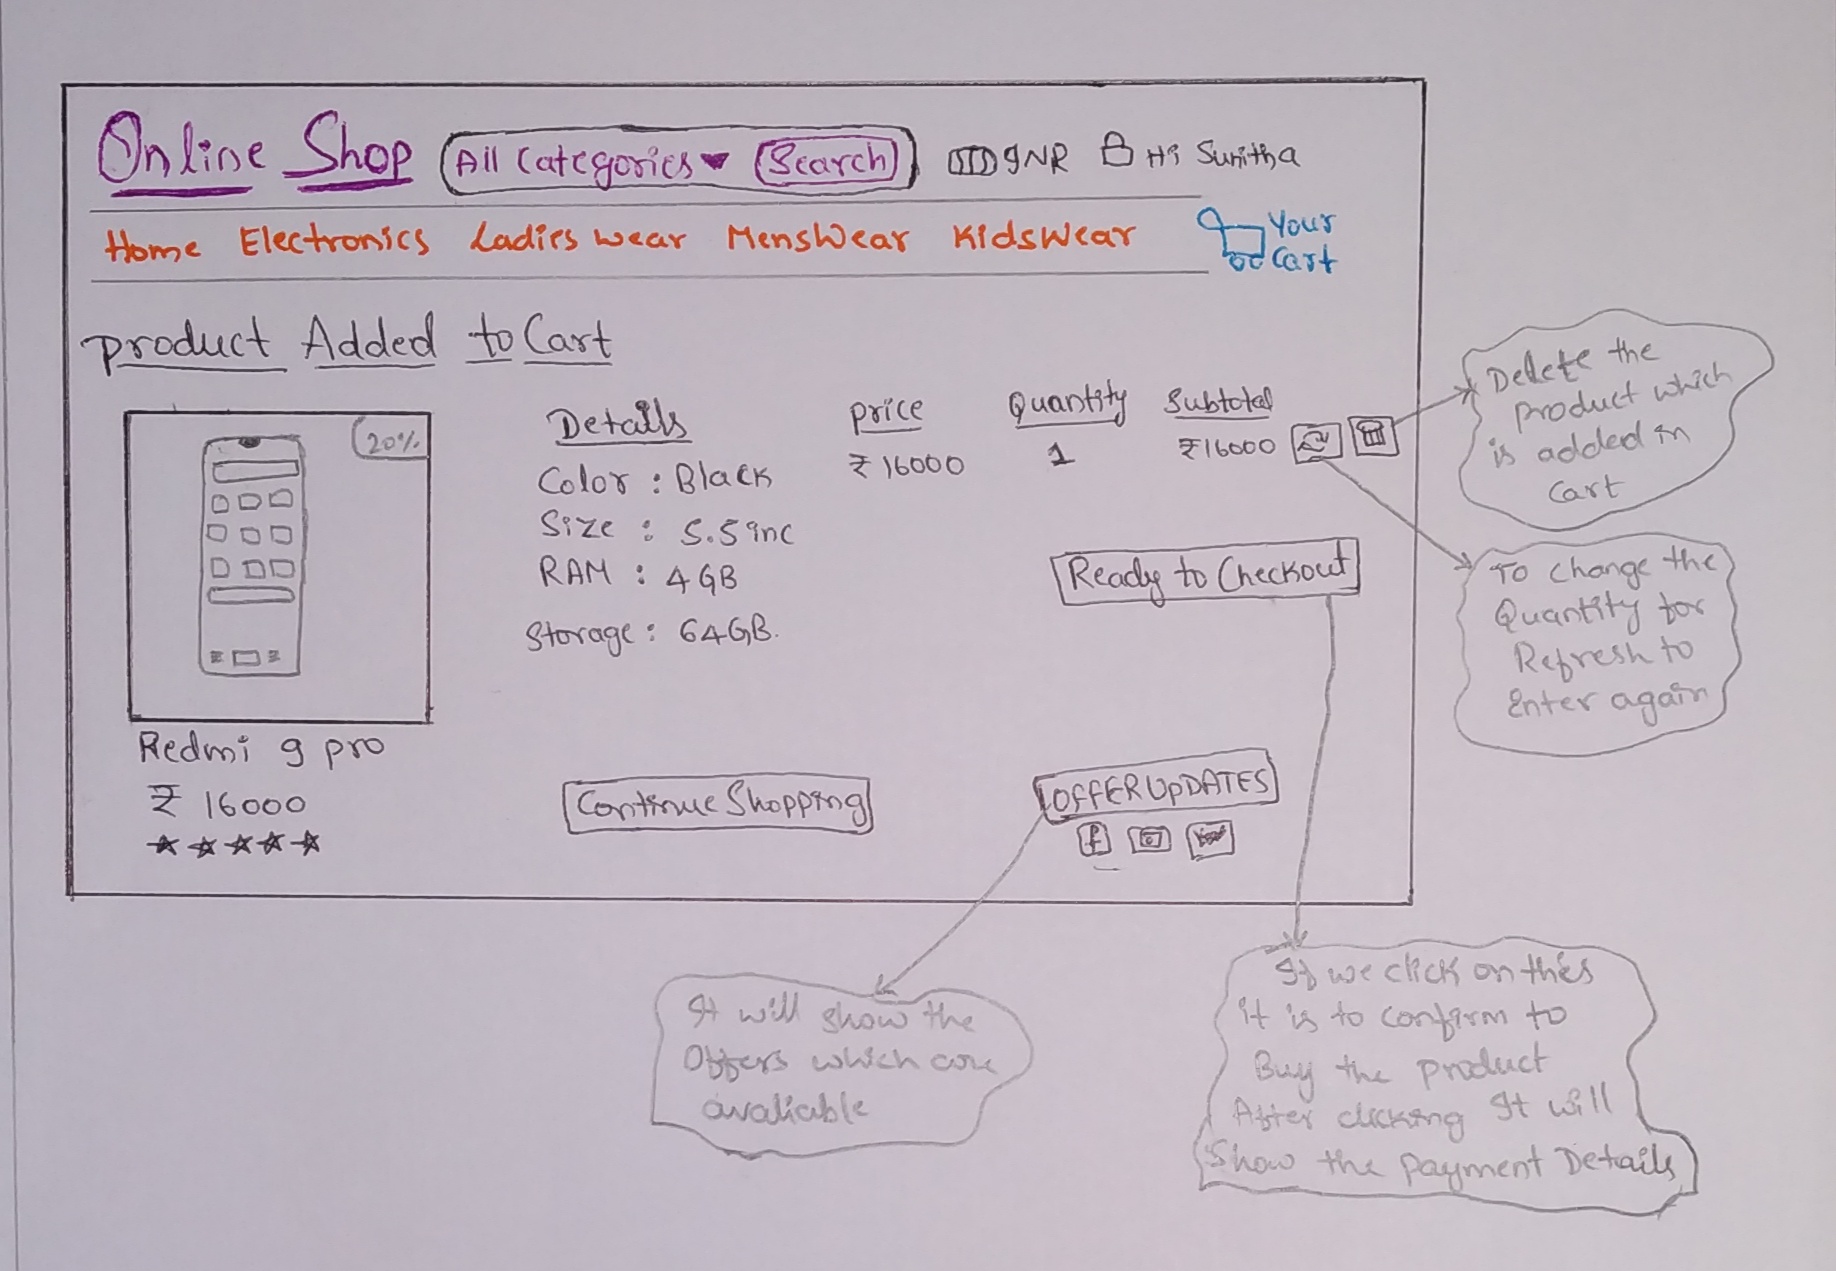 Online Shop All Categories Search INR Hi Sunitha
Home Electronics Ladies wear MensWear KidsWear Your
Cart
product Added to Cart
20%
Details price Quantity Subtotal
Color : Black ₹ 16000 1 ₹16000
Size : 5.5 inc
RAM : 4 GB
Storage : 64GB.
Ready to Checkout
Redmi 9 pro
₹ 16000
Continue Shopping
OFFER UpDATES
f
Delete the
product which
is added in
Cart
To change the
Quantity for
Refresh to
Enter again
It will show the
Offers which are
avaliable
If we click on this
it is to confirm to
Buy the product
After clicking It will
Show the payment Details